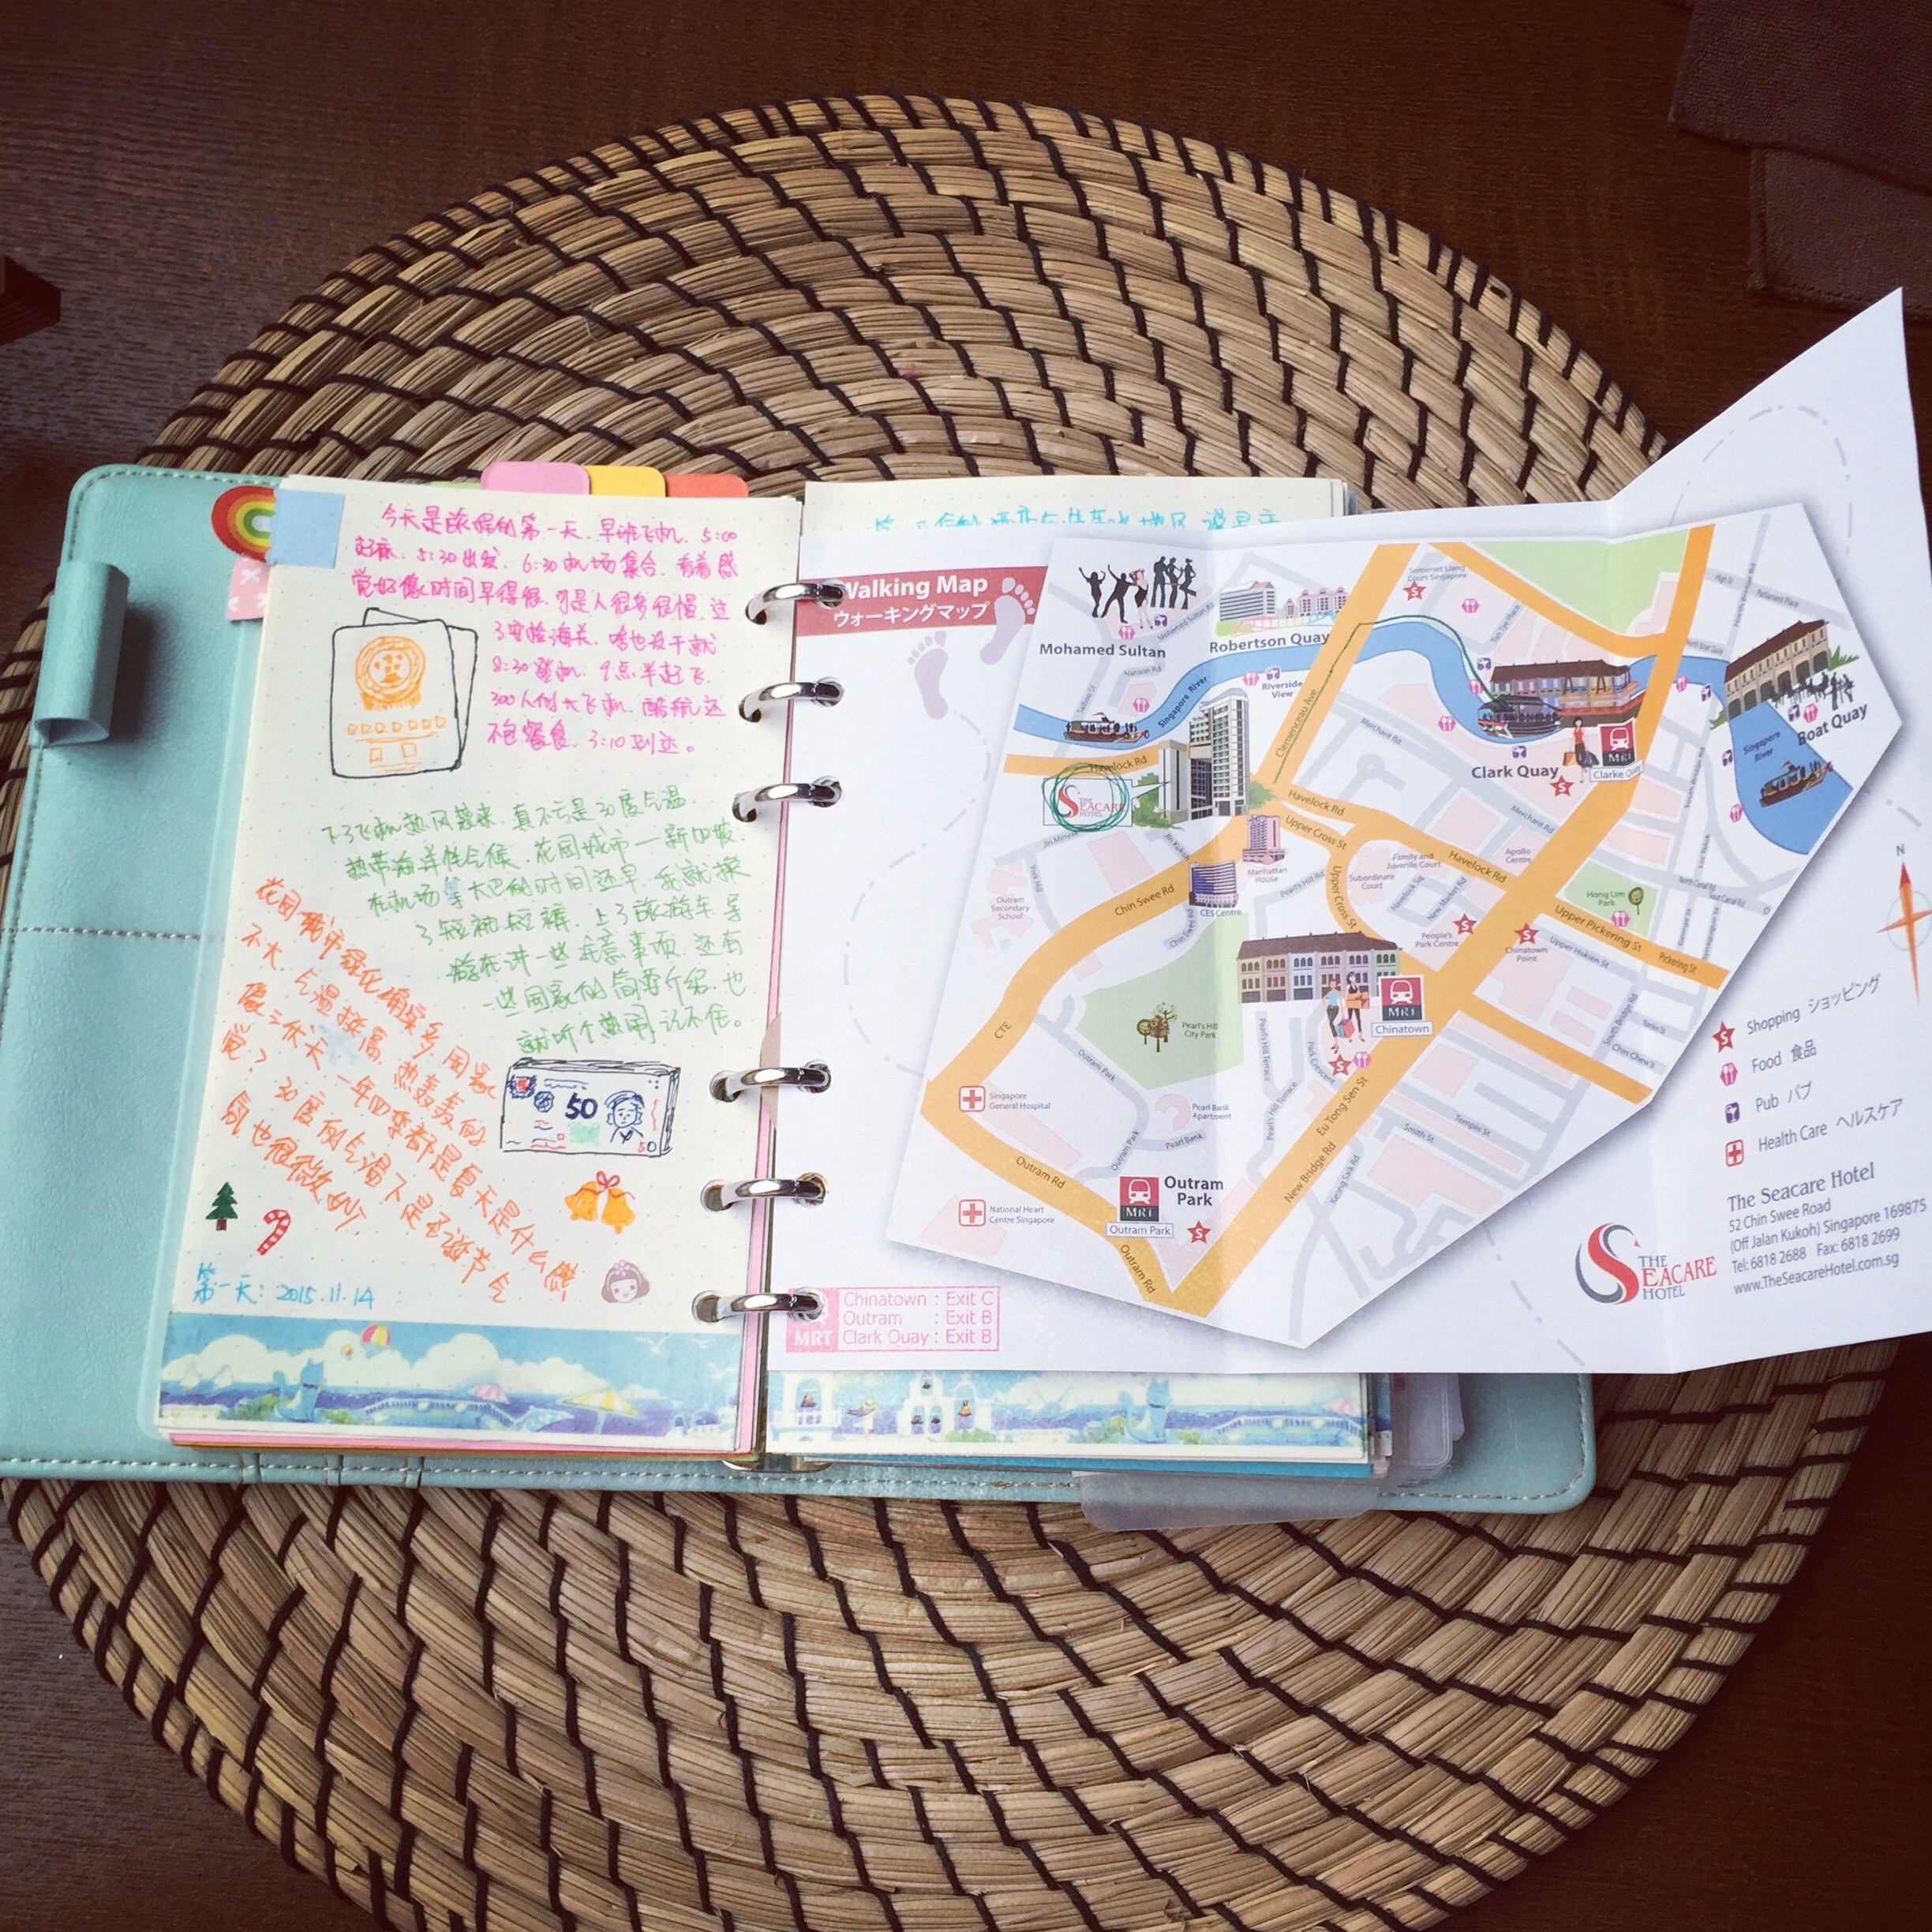 今天是旅程的第一天.早班飞机.5:00
起床.5:30出发.6:30机场集合.看着感
觉好像时间早得很.可是人很多很慢.过
了安检海关.啥也没干就
8:30登机.9点半起飞.
300人的大飞机.酷航还
不包餐食.3:10到达。
下了飞机热风袭来.真不亏是30度气温.
热带海洋性气候.花园城市—新加坡.
在机场等大巴的时间还早.我就换
了短袖短裤.上了旅游车导
游在讲一些注意事项.还有
一些国家的简要介绍.也
就听个热闹记不住。
花园城市绿化确实多.国家
不大.气温挺高.热轰轰的
像三伏天.一年四季都是夏天是什么感
觉?30度的气温下是圣诞节气
氛也很微妙.
50
50
第一天:2015.11.14
Walking Map
ウォーキングマップ
Mohamed Sultan
Mohamed Sultan Rd
Nanson Rd
Robertson Quay
Riverside
View
Singapore River
Havelock Rd
THE
SEACARE
HOTEL
Clemenceau Ave
Somerset Liang
Court Singapore
High St
Parliament Place
North Boat Quay
Merchant Rd
Clark Quay
MRT
Clarke Quay
Boat Quay
Singapore
River
Havelock Rd
Upper Cross St
Merchant Rd
Manhattan
House
CES Centre
Chin Swee Rd
York Hill
Outram
Secondary
School
Pearl's Hill
Family and
Juvenile Court
Subordinate
Court
Apollo
Centre
Havelock Rd
Havelock Sq
New Market Rd
Upper Cross St
People's
Park Centre
Chinatown
Point
Hong Lim
Park
North Canal Rd
Upper Pickering St
Pickering St
Upper Hokien St
South Bridge Rd
Chin Chew St
CTE
Pearl's Hill
City Park
MRT
Chinatown
Outram Park
Pearl's Hill Terrace
Park Crescent
Pearl's Hill Terrace
Eu Tong Sen St
New Bridge Rd
Temple St
Smith St
Keong Saik Rd
Singapore
General Hospital
Pearl Bank
Apartment
Pearl Bank
Outram Park
Outram Rd
National Heart
Centre Singapore
MRT
Outram Park
Outram
Park
Outram Rd
N
Shopping ショッピング
Food 食品
Pub パブ
Health Care ヘルスケア
THE
SEACARE
HOTEL
The Seacare Hotel
52 Chin Swee Road
(Off Jalan Kukoh) Singapore 169875
Tel: 6818 2688 Fax: 6818 2699
www.TheSeacareHotel.com.sg
MRT
Chinatown : Exit C
Outram : Exit B
Clark Quay : Exit B